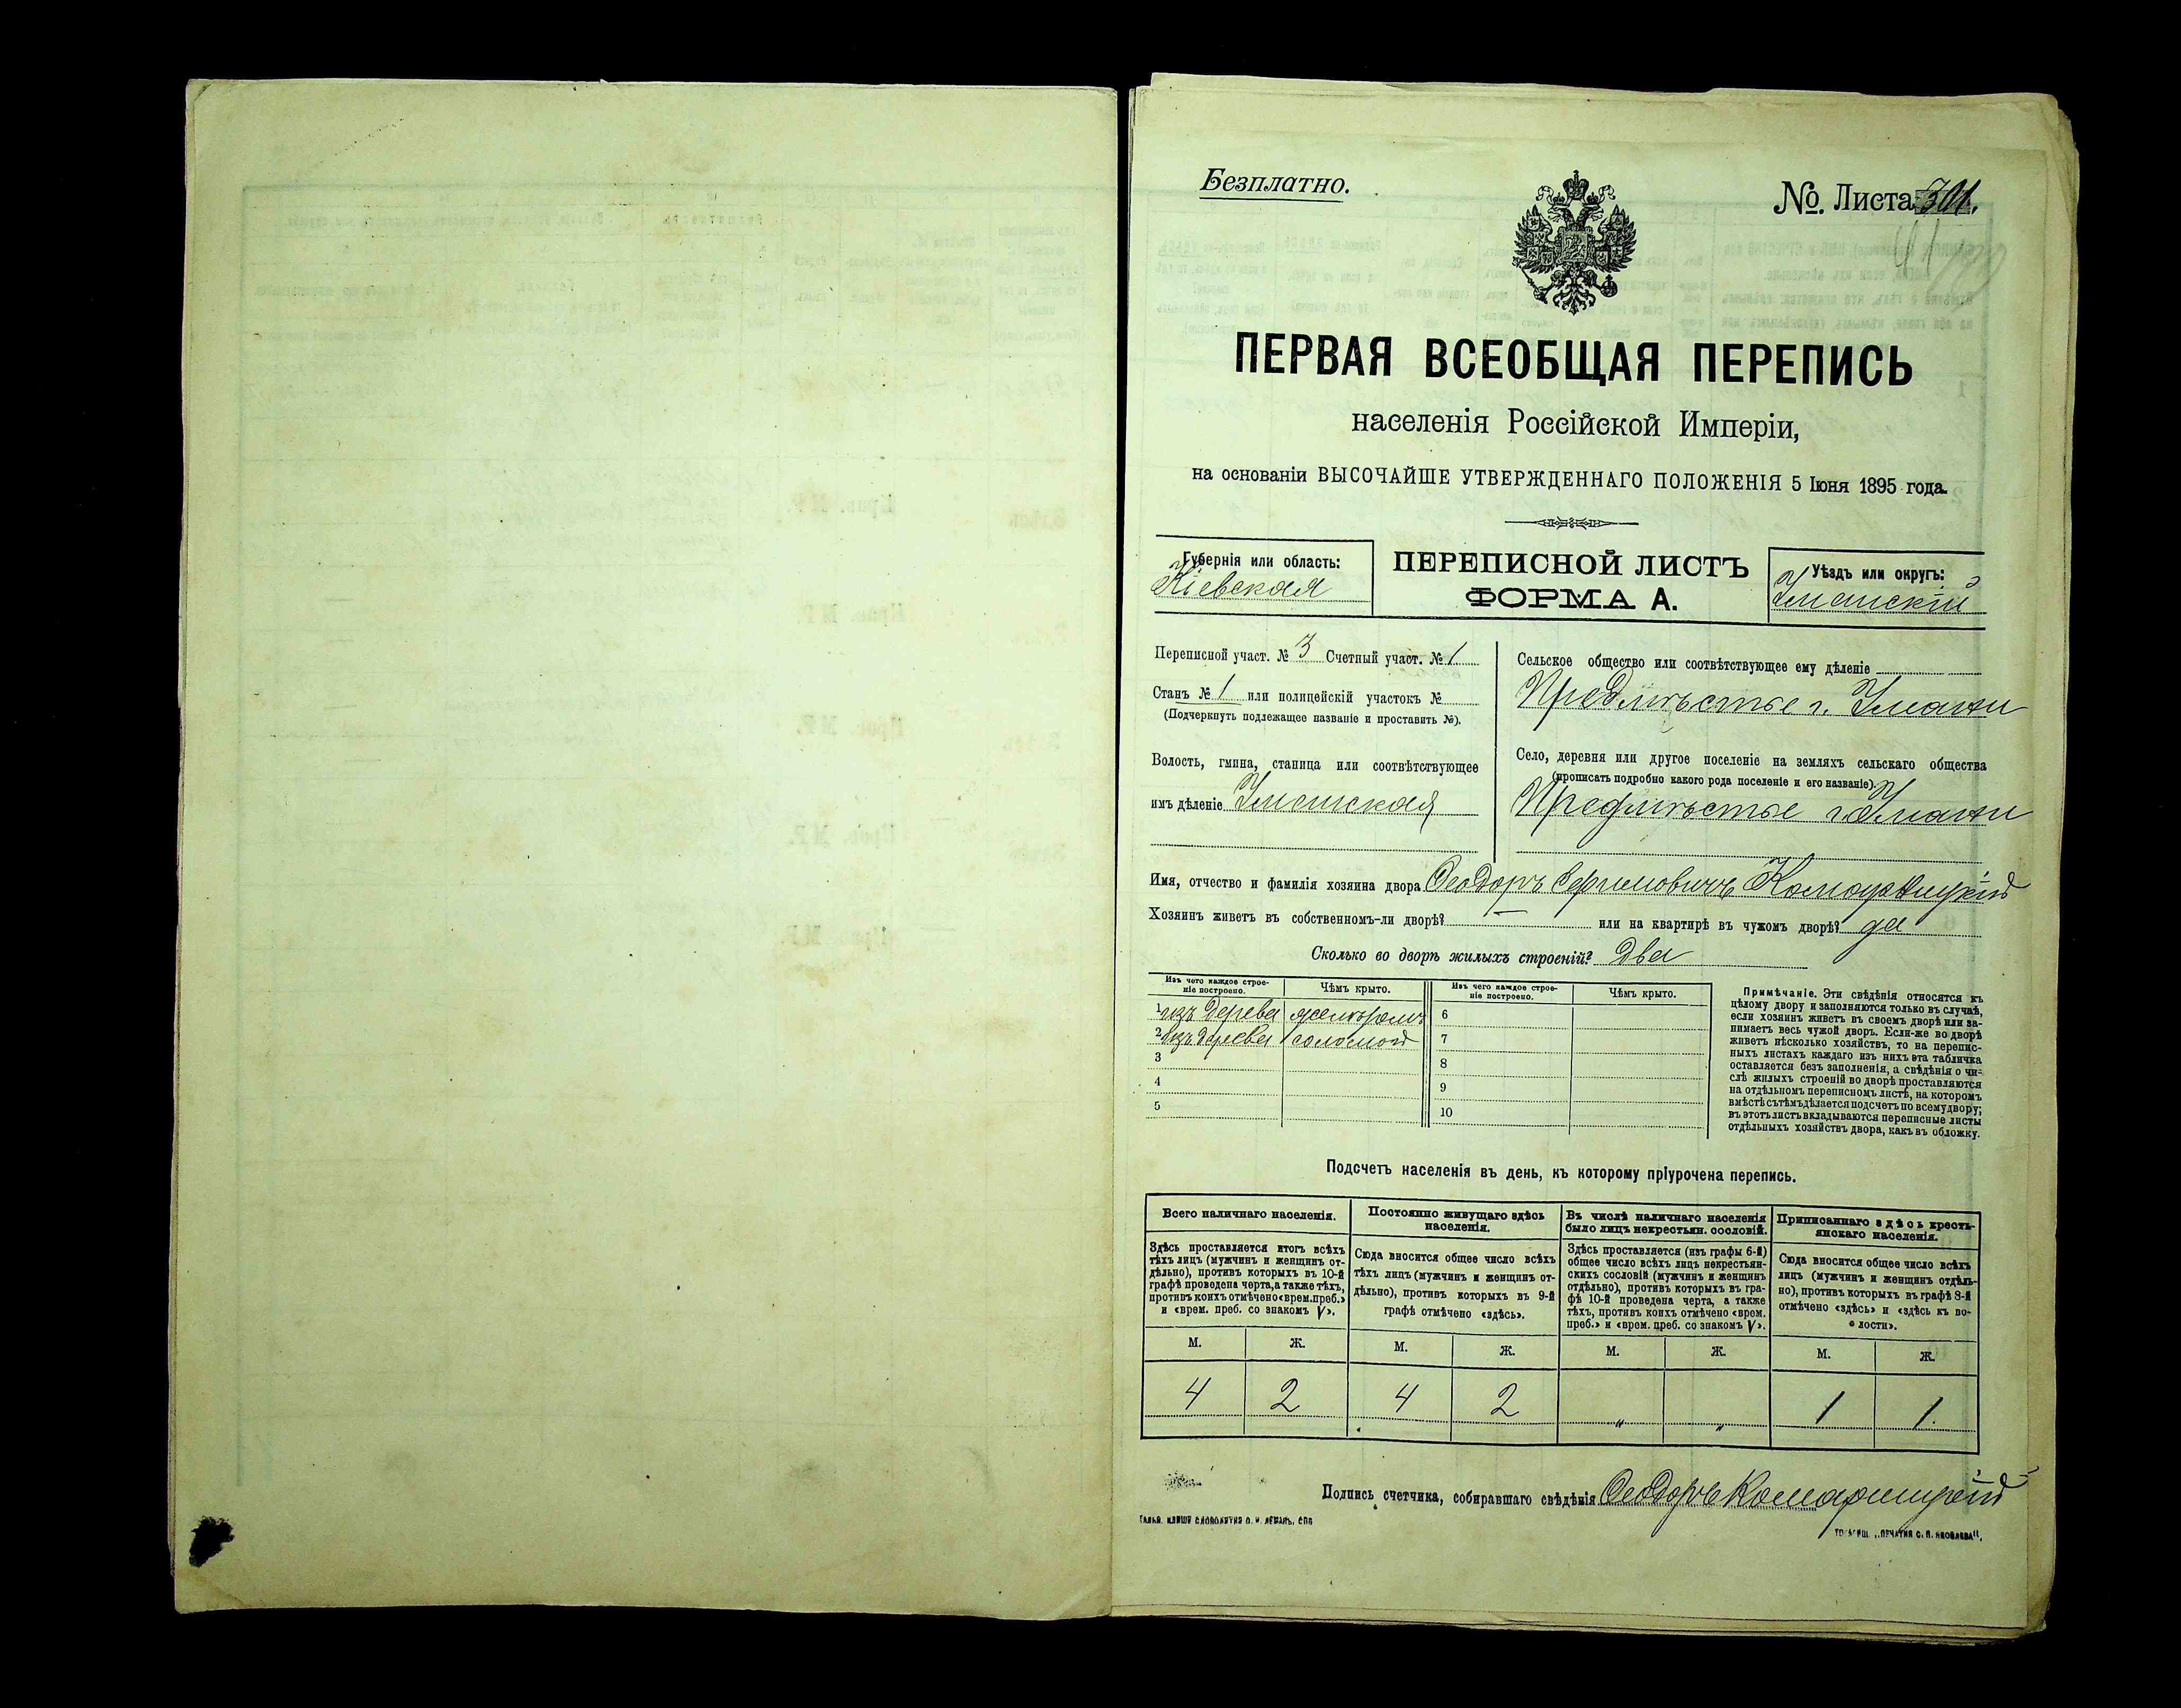 Безплатно.
№. Листа 301.
ПЕРВАЯ ВСЕОБЩАЯ ПЕРЕПИСЬ
населенія Россійской Имперіи,
на основаніи ВЫСОЧАЙШЕ УТВЕРЖДЕННАГО ПОЛОЖЕНІЯ 5 Іюня 1895 года.
Губернія или область:
Кіевская
ПЕРЕПИСНОЙ ЛИСТЪ
ФОРМА А.
Уѣздъ или округъ:
Уманскій
Переписной участ. № 3 Счетный участ. № 1
Станъ № 1 или полицейскій участокъ №
(Подчеркнуть подлежащее названіе и проставить №).
Волость, гмина, станица или соотвѣтствующее
имъ дѣленіе Уманская
Сельское общество или соотвѣтствующее ему дѣленіе
Предмѣстье г. Умани
Село, деревня или другое поселеніе на земляхъ сельскаго общества
(прописать подробно какого рода поселеніе и его названіе).
Предмѣстье г. Умани
Имя, отчество и фамилія хозяина двора Ѳеодоръ
Хозяинъ живетъ въ собственномъ-ли дворѣ? — или на квартирѣ въ чужомъ дворѣ? да
Сколько во дворѣ жилыхъ строеній? Два
Изъ чего каждое строе-
ніе построено.
Чѣмъ крыто.
Изъ чего каждое строе-
ніе построено.
Чѣмъ крыто.
1 изъ дерева желѣзомъ 6
2 изъ дерева соломой 7
3 8
4 9
5 10
Примѣчаніе. Эти свѣдѣнія относятся къ
цѣлому двору и заполняются только въ случаѣ,
если хозяинъ живетъ въ своемъ дворѣ или за-
нимаетъ весь чужой дворъ. Если-же во дворѣ
живетъ нѣсколько хозяйствъ, то на перепис-
ныхъ листахъ каждаго изъ нихъ эта табличка
оставляется безъ заполненія, а свѣдѣнія о чи-
слѣ жилыхъ строеній во дворѣ проставляются
на отдѣльномъ переписномъ листѣ, на которомъ
вмѣстѣ съ тѣмъ дѣлается подсчетъ по всему двору;
въ этотъ листъ вкладываются переписные листы
отдѣльныхъ хозяйствъ двора, какъ въ обложку.
Подсчетъ населенія въ день, къ которому пріурочена перепись.
Всего наличнаго населенія.
Здѣсь проставляется итогъ всѣхъ
тѣхъ лицъ (мужчинъ и женщинъ от-
дѣльно), противъ которыхъ въ 10-й
графѣ проведена черта, а также тѣхъ,
противъ коихъ отмѣчено «врем. преб.»
и «врем. преб. со знакомъ V».
Постоянно живущаго здѣсь
населенія.
Сюда вносится общее число всѣхъ
тѣхъ лицъ (мужчинъ и женщинъ от-
дѣльно), противъ которыхъ въ 9-й
графѣ отмѣчено «здѣсь».
Въ числѣ наличнаго населенія
было лицъ некрестьян. сословій.
Здѣсь проставляется (изъ графы 6-й)
общее число всѣхъ лицъ некрестьян-
скихъ сословій (мужчинъ и женщинъ
отдѣльно), противъ которыхъ въ гра-
фѣ 10-й проведена черта, а также
тѣхъ, противъ коихъ отмѣчено «врем.
преб.» и «врем. преб. со знакомъ V».
Приписаннаго здѣсь кресть-
янскаго населенія.
Сюда вносится общее число всѣхъ
лицъ (мужчинъ и женщинъ отдѣль-
но), противъ которыхъ въ графѣ 8-й
отмѣчено «здѣсь» и «здѣсь къ во-
лости».
М. Ж. М. Ж. М. Ж. М. Ж.
4 2 4 2 " " 1 1.
Подпись счетчика, собиравшаго свѣдѣнія Ѳеодоръ Комарницкій